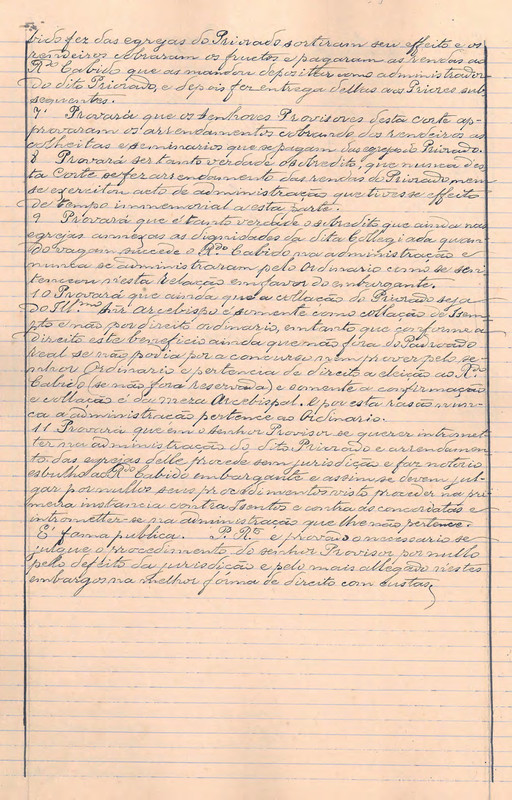 bido fez das egrejas do Priorado sortiram seu effeito e os
rendeiros cobraram os fructos e pagaram as rendas ao
R.do Cabido que as mandou depositar como administrador
do dito Priorado, e depois fez entrega dellas aos Priores sub-
sequentes.
7 Provará que os senhores Provisores desta corte ap-
provaram os arrendamentos cobrando dos rendeiros as
colheitas e seminarios que se pagam das egrejas do Priorado.
8 Provará ser tanto verdade o sobredito, que nunca des-
ta Corte se fez arrendamento das rendas do Priorado nem
se exercitou acto de administração que tivesse effeito
de tempo immemorial a esta parte.
9 Provará que é tanto verdade o sobredito que ainda nas
egrejas annexas as dignidades da dita Collegiada quan-
do vagam succede o R.do Cabido na administração e
nunca se administraram pelo Ordinario como se sen-
tenceou nesta Relação em favor do embargante.
10 Provará que ainda que a collação do Priorado seja
do Ill.mo Snr. Arcebispo é somente como collação de Isem-
pto e não por direito ordinario, emtanto que conforme a
direito este beneficio ainda que não fôra do Padroado
real se não poria por a concurso nem prover pelo se-
nhor Ordinario e pertencia de direito a eleição ao R.do
Cabido (se não fora reservada) e somente a confirmação
e collação é da mera Arcebispal. E por esta rasão nun-
ca a administração pertence ao Ordinario.
11 Provará que em o senhor Provisor se querer intromet-
ter na administração do dito Priorado e arrendamen-
to das egrejas delle procede sem jurisdicção e faz notorio
esbulho ao R.do Cabido embargante e assim se devem jul-
gar por nullos seus procedimentos visto proceder na pri-
meira instancia contra Isentos e contra as concordatas e
intrometter-se na administração que lhe não pertence.
E' fama publica. P. R.to e provado o necessario se
julgue o procedimento do senhor Provisor por nullo
pelo defeito da jurisdicção e pelo mais allegado nestes
embargos na melhor fórma de direito com custas,